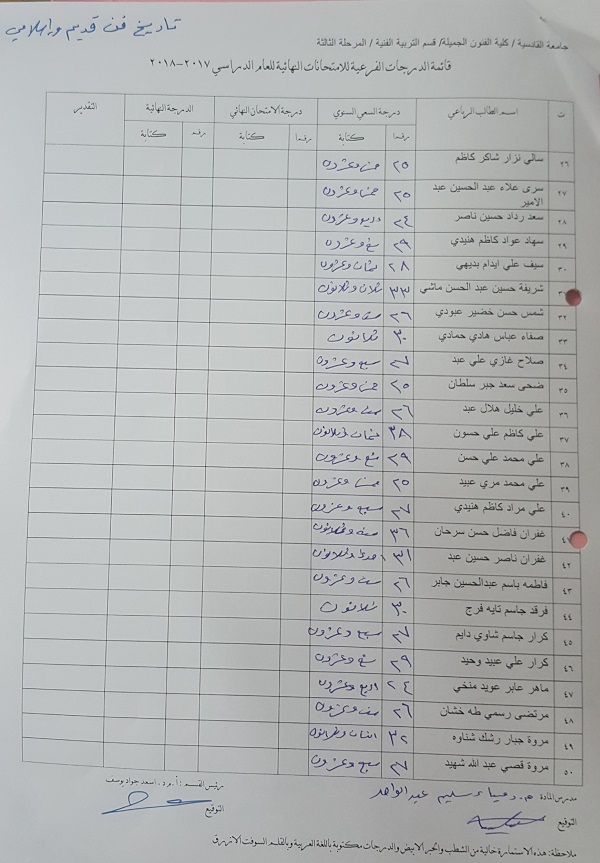 تاريخ فن قديم واسلامي
جامعة القادسية / كلية الفنون الجميلة/ قسم التربية الفنية / المرحلة الثالثة
قائمة الدرجات الفرعية للامتحانات النهائية للعام الدراسي ٢٠١٧-٢٠١٨
ت اسم الطالب الرباعي درجة السعي السنوي درجة الامتحان النهائي الدرجة النهائية التقدير
رقما كتابة رقما كتابة رقما كتابة
٢٦ سالي نزار شاكر كاظم ٢٥ خمس وعشرون
٢٧ سرى علاء عبد الحسين عبد الامير ٢٥ خمس وعشرون
٢٨ سعد رداد حسين ناصر ٢٤ اربع وعشرون
٢٩ سهاد عواد كاظم هنيدي ٢٩ تسع وعشرون
٣٠ سيف علي ايدام بديهي ٢٨ ثمان وعشرون
٣١ شريفة حسين عبد الحسن ماشي ٣٣ ثلاث وثلاثون
٣٢ شمس حسن خضير عبودي ٢٦ ست وعشرون
٣٣ صفاء عباس هادي حمادي ٣٠ ثلاثون
٣٤ صلاح غازي علي عبد ٢٧ سبع وعشرون
٣٥ ضحى سعد جبر سلطان ٢٥ خمس وعشرون
٣٦ علي خليل هلال عبد ٢٦ ست وعشرون
٣٧ علي كاظم علي حسون ٣٨ ثمان وثلاثون
٣٨ علي محمد علي حسن ٢٩ تسع وعشرون
٣٩ علي محمد مري عبيد ٢٥ خمس وعشرون
٤٠ علي مراد كاظم هنيدي ٢٧ سبع وعشرون
٤١ غفران فاضل حسن سرحان ٣٦ ستة وثلاثون
٤٢ غفران ناصر حسين عبد ٣١ احدى وثلاثون
٤٣ فاطمه باسم عبدالحسين جابر ٢٦ ست وعشرون
٤٤ فرقد جاسم تايه فرج ٣٠ ثلاثون
٤٥ كرار جاسم شاوي دايم ٢٧ سبع وعشرون
٤٦ كرار علي عبيد وحيد ٢٩ تسع وعشرون
٤٧ ماهر عابر عويد منخي ٢٤ اربع وعشرون
٤٨ مرتضى رسمي طه خشان ٢٦ ست وعشرون
٤٩ مروة جبار رشك شناوه ٣٢ اثنان وثلاثون
٥٠ مروة قصي عبد الله شهيد ٢٧ سبع وعشرون
مدرس المادة م.د ميساء سليم عبد الواحد
رئيس القسم : أ.م.د. اسعد جواد يوسف
التوقيع
التوقيع
ملاحظة: هذه الاستمارة خالية من الشطب والحبر الابيض والدرجات مكتوبة باللغة العربية وبالقلم السوفت الازرق